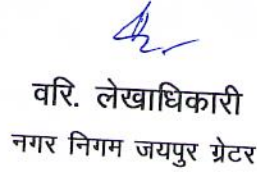 वरि. लेखाधिकारी
नगर निगम जयपुर ग्रेटर